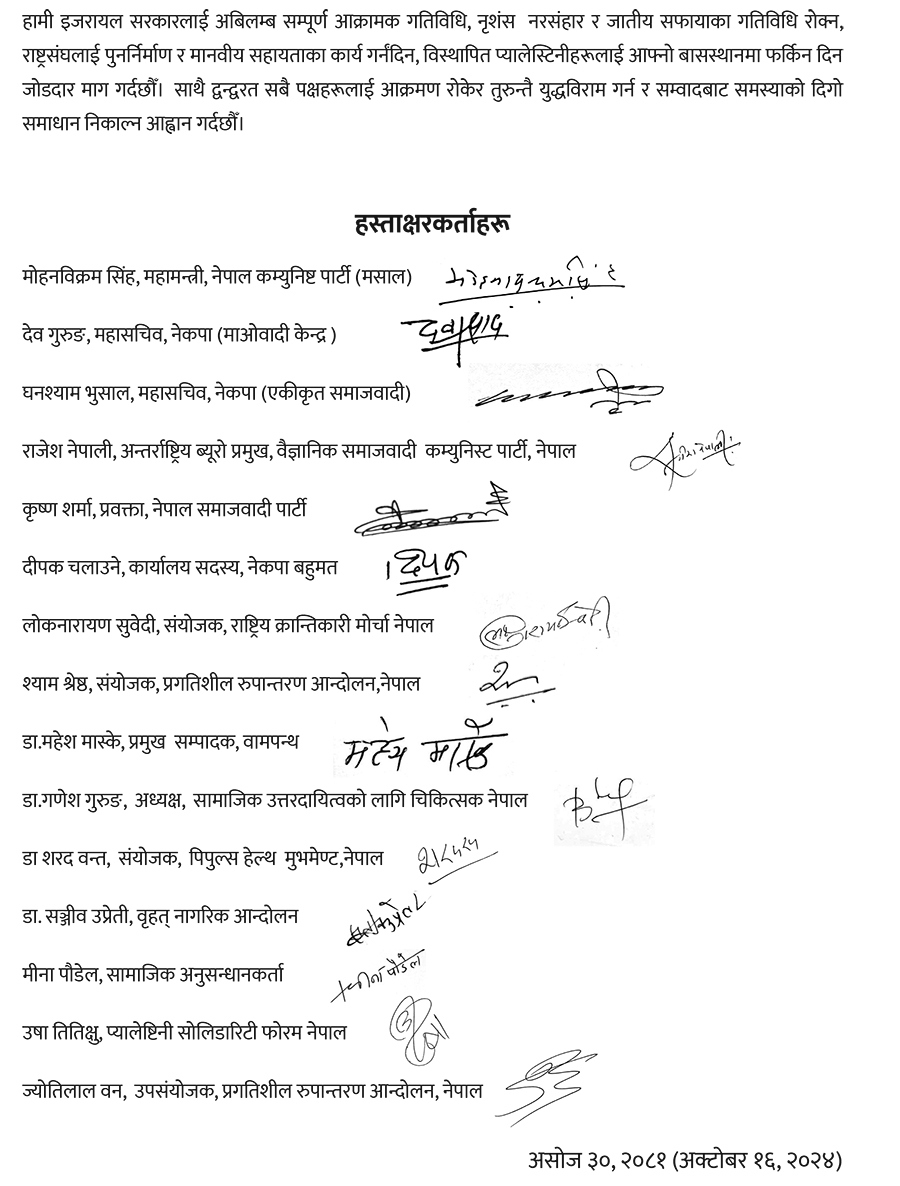 हामी इजरायल सरकारलाई अबिलम्ब सम्पूर्ण आक्रामक गतिविधि, नृशंस नरसंहार र जातीय सफायाका गतिविधि रोक्न,
राष्ट्रसंघलाई पुनर्निर्माण र मानवीय सहायताका कार्य गर्नंदिन, विस्थापित प्यालेस्टिनीहरूलाई आफ्नो बासस्थानमा फर्किन दिन
जोडदार माग गर्दछौँ। साथै द्वन्द्वरत सबै पक्षहरूलाई आक्रमण रोकेर तुरुन्तै युद्धविराम गर्न र सम्वादबाट समस्याको दिगो
समाधान निकाल्न आह्वान गर्दछौँ।
हस्ताक्षरकर्ताहरू
मोहनविक्रम सिंह, महामन्त्री, नेपाल कम्युनिष्ट पार्टी (मसाल)
देव गुरुङ, महासचिव, नेकपा (माओवादी केन्द्र )
घनश्याम भुसाल, महासचिव, नेकपा (एकीकृत समाजवादी)
राजेश नेपाली, अन्तर्राष्ट्रिय ब्यूरो प्रमुख, वैज्ञानिक समाजवादी कम्युनिस्ट पार्टी, नेपाल
कृष्ण शर्मा, प्रवक्ता, नेपाल समाजवादी पार्टी
दीपक चलाउने, कार्यालय सदस्य, नेकपा बहुमत दिपक
लोकनारायण सुवेदी, संयोजक, राष्ट्रिय क्रान्तिकारी मोर्चा नेपाल
श्याम श्रेष्ठ, संयोजक, प्रगतिशील रुपान्तरण आन्दोलन,नेपाल
डा.महेश मास्के, प्रमुख सम्पादक, वामपन्थ महेश मास्के
डा.गणेश गुरुङ, अध्यक्ष, सामाजिक उत्तरदायित्वको लागि चिकित्सक नेपाल
डा शरद वन्त, संयोजक, पिपुल्स हेल्थ मुभमेण्ट,नेपाल
डा. सञ्जीव उप्रेती, वृहत् नागरिक आन्दोलन
मीना पौडेल, सामाजिक अनुसन्धानकर्ता मीना पौडेल
उषा तितिक्षु, प्यालेष्टिनी सोलिडारिटी फोरम नेपाल
ज्योतिलाल वन, उपसंयोजक, प्रगतिशील रुपान्तरण आन्दोलन, नेपाल
असोज ३०, २०८१ (अक्टोबर १६, २०२४)